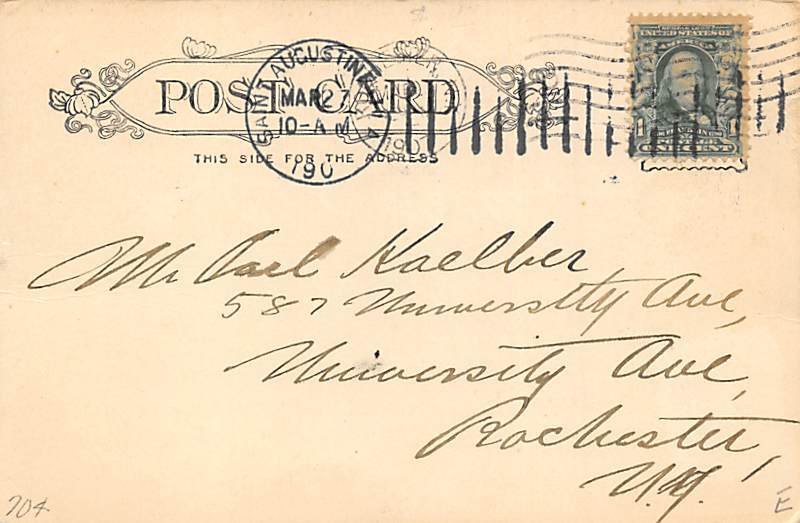 POST CARD
THIS SIDE FOR THE ADDRESS
SAINT AUGUSTINE
MAR 27
10-A M
190
190
SERIES 1902
UNITED STATES OF
AMERICA
1 1
ONE CENT
Mr Carl Kaelber
587 University Ave,
University Ave,
Rochester,
N.Y.
704
E